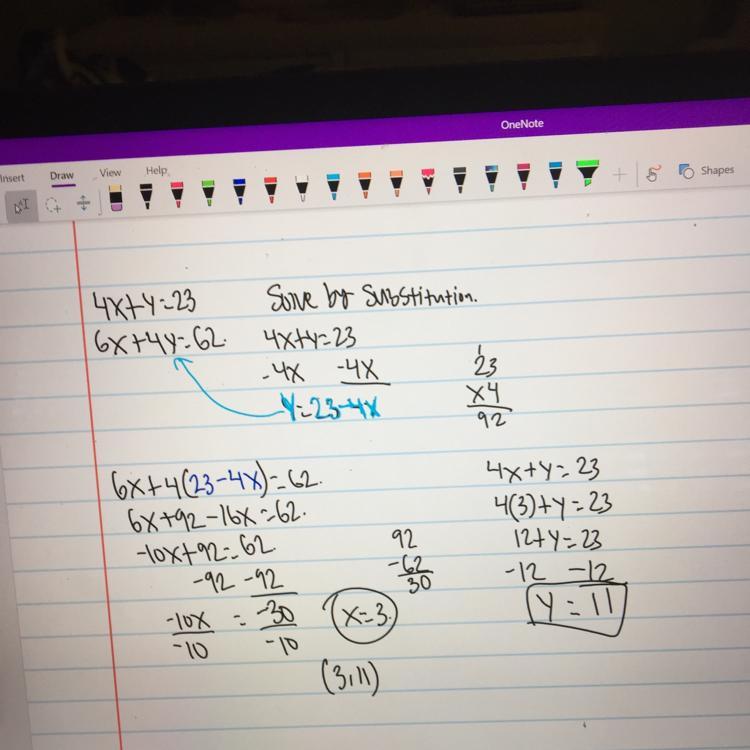 OneNote
Insert Draw View Help
Shapes
4x+y=23 Solve by Substitution.
6x+4y=62. 4x+y=23
-4x -4x
y=23-4x
1
23
x4
92
6x+4(23-4x)=62.
6x+92-16x=62.
-10x+92=62
-92 -92
-10x = -30
-10 -10
x=3.
92
-62
30
4x+y=23
4(3)+y=23
12+y=23
-12 -12
y=11
(3,11)